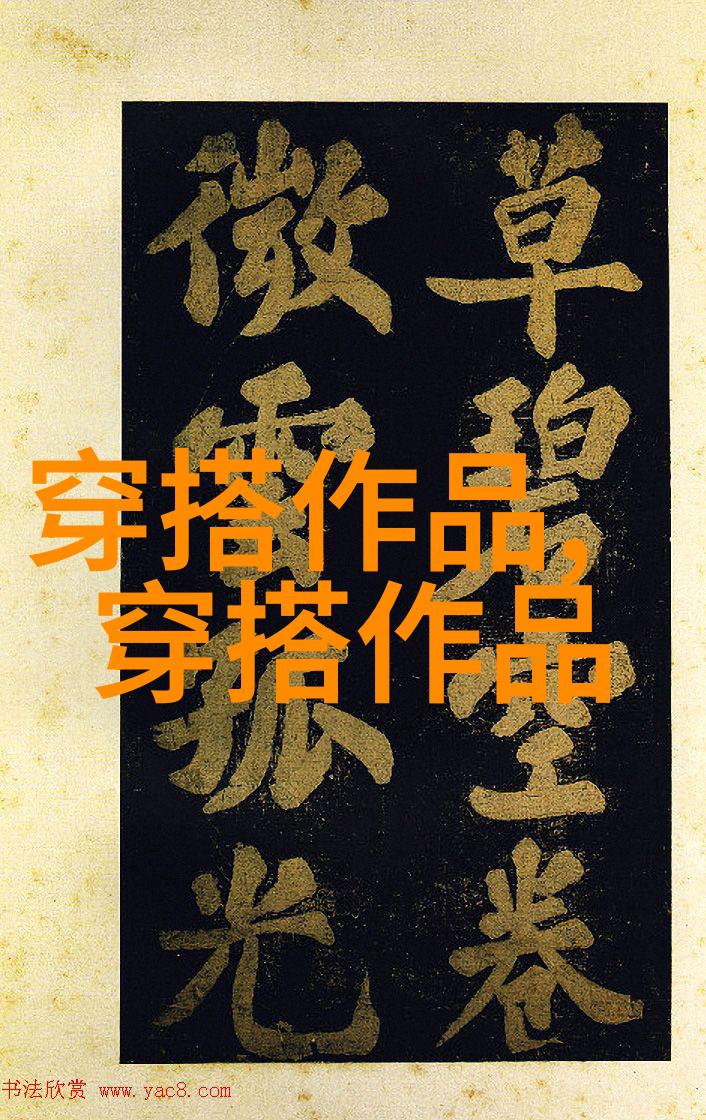 草碧空卷
微雲孤光
穿搭作品,
穿搭作品
书法欣赏 www.yac8.com